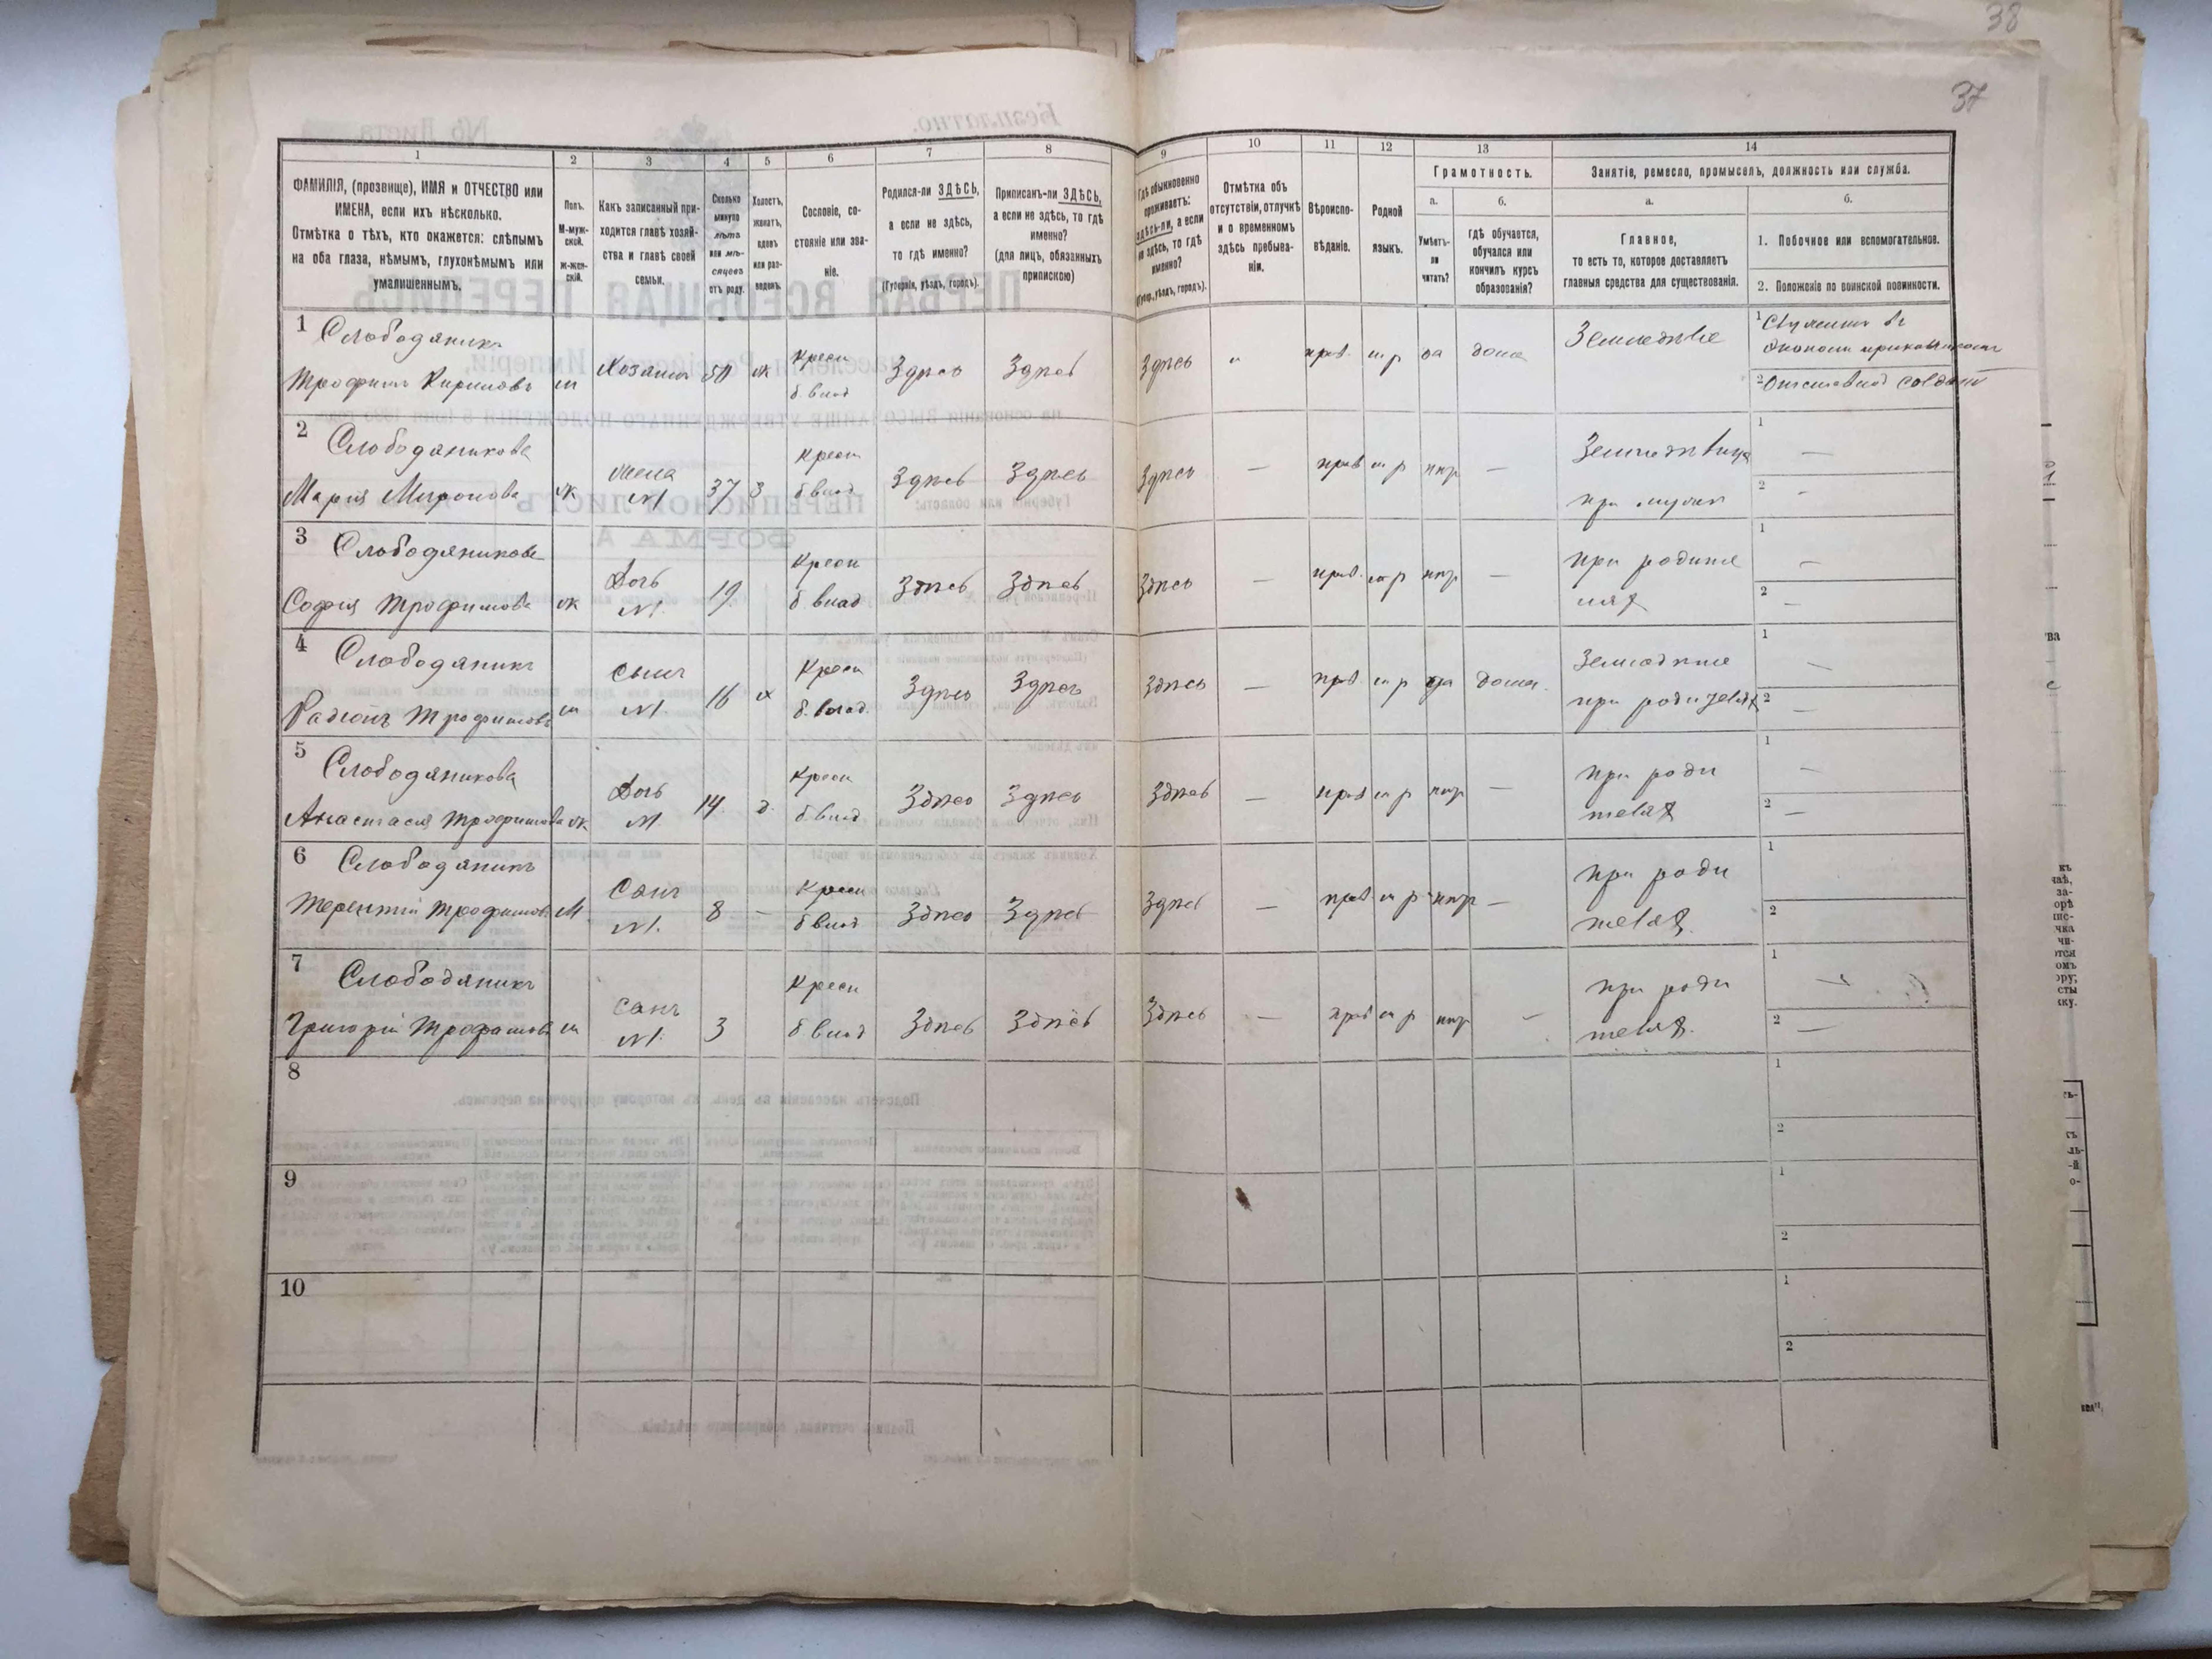 38
37
1 2 3 4 5 6 7 8 9 10 11 12 13 14
ФАМИЛІЯ, (прозвище), ИМЯ и ОТЧЕСТВО или ИМЕНА, если ихъ нѣсколько.
Отмѣтка о тѣхъ, кто окажется: слѣпымъ на оба глаза, нѣмымъ, глухонѣмымъ или умалишеннымъ.
Полъ. М-мужской. ж-женскій.
Какъ записанный приходится главѣ хозяйства и главѣ своей семьи.
Сколько минуло лѣтъ или мѣсяцевъ отъ роду.
Холостъ, женатъ, вдовъ или разведенъ.
Сословіе, состояніе или званіе.
Родился-ли ЗДѢСЬ, а если не здѣсь, то гдѣ именно?
(Губернія, уѣздъ, городъ).
Приписанъ-ли ЗДѢСЬ, а если не здѣсь, то гдѣ именно?
(для лицъ, обязанныхъ припискою)
Гдѣ обыкновенно проживаетъ: здѣсь-ли, а если не здѣсь, то гдѣ именно?
(Губер., уѣздъ, городъ).
Отмѣтка объ отсутствіи, отлучкѣ и о временномъ здѣсь пребываніи.
Вѣроисповѣданіе.
Родной языкъ.
Грамотность.
а. Умѣетъ-ли читать?
б. гдѣ обучается, обучался или кончилъ курсъ образованія?
Занятіе, ремесло, промыселъ, должность или служба.
а. Главное, то есть то, которое доставляетъ главныя средства для существованія.
б.
1. Побочное или вспомогательное.
2. Положеніе по воинской повинности.
1 Слободяникъ
Трофимъ Кириловъ м Хозяинъ 50 ж Крест б. влад Здѣсь Здѣсь Здѣсь " прав. м р да дома Земледѣліе
2 Слободяникова
Мария Миронова ж жена N1 37 З Крест б влад Здѣсь Здѣсь Здѣсь — прав м р нѣт — 1 — 2 —
3 Слободяникова
София Трофимова ж Дочь N1. 19 Крест б влад Здѣсь Здѣсь Здѣсь — прав. м р нѣт — при родителях 1 — 2 —
4 Слободяникъ
Радіонъ Трофимовъ м сынъ N1. 16 х Крест б. влад. Здѣсь Здѣсь Здѣсь — прав. м р да дома. при родителях 1 — 2 —
5 Слободяникова
Анастасия Трофимова ж Дочь N1. 14. д. Крест б. влад Здѣсь Здѣсь Здѣсь — прав м р нѣт — при родителях 1 — 2 —
6 Слободяникъ
Терентий Трофимовъ М. Сынъ N1. 8 — Крест б влад Здѣсь Здѣсь Здѣсь — прав м р нѣт — при родителях. 1 2
7 Слободяникъ
Григорій Трофимовъ м сынъ N1. 3 Крест б влад Здѣсь Здѣсь Здѣсь — прав м р нѣт — при родителях. 1 — 2 —
8 1 2
9 1 2
10 1 2